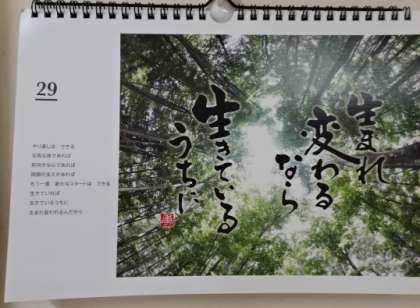 29
生まれ
変わる
なら
生きている
うちに
やり直しは　できる
元気な体であれば
前向きな心であれば
周囲の支えがあれば
もう一度　新たなスタートは　できる
生きていれば
生きているうちに
生まれ変われるんだから